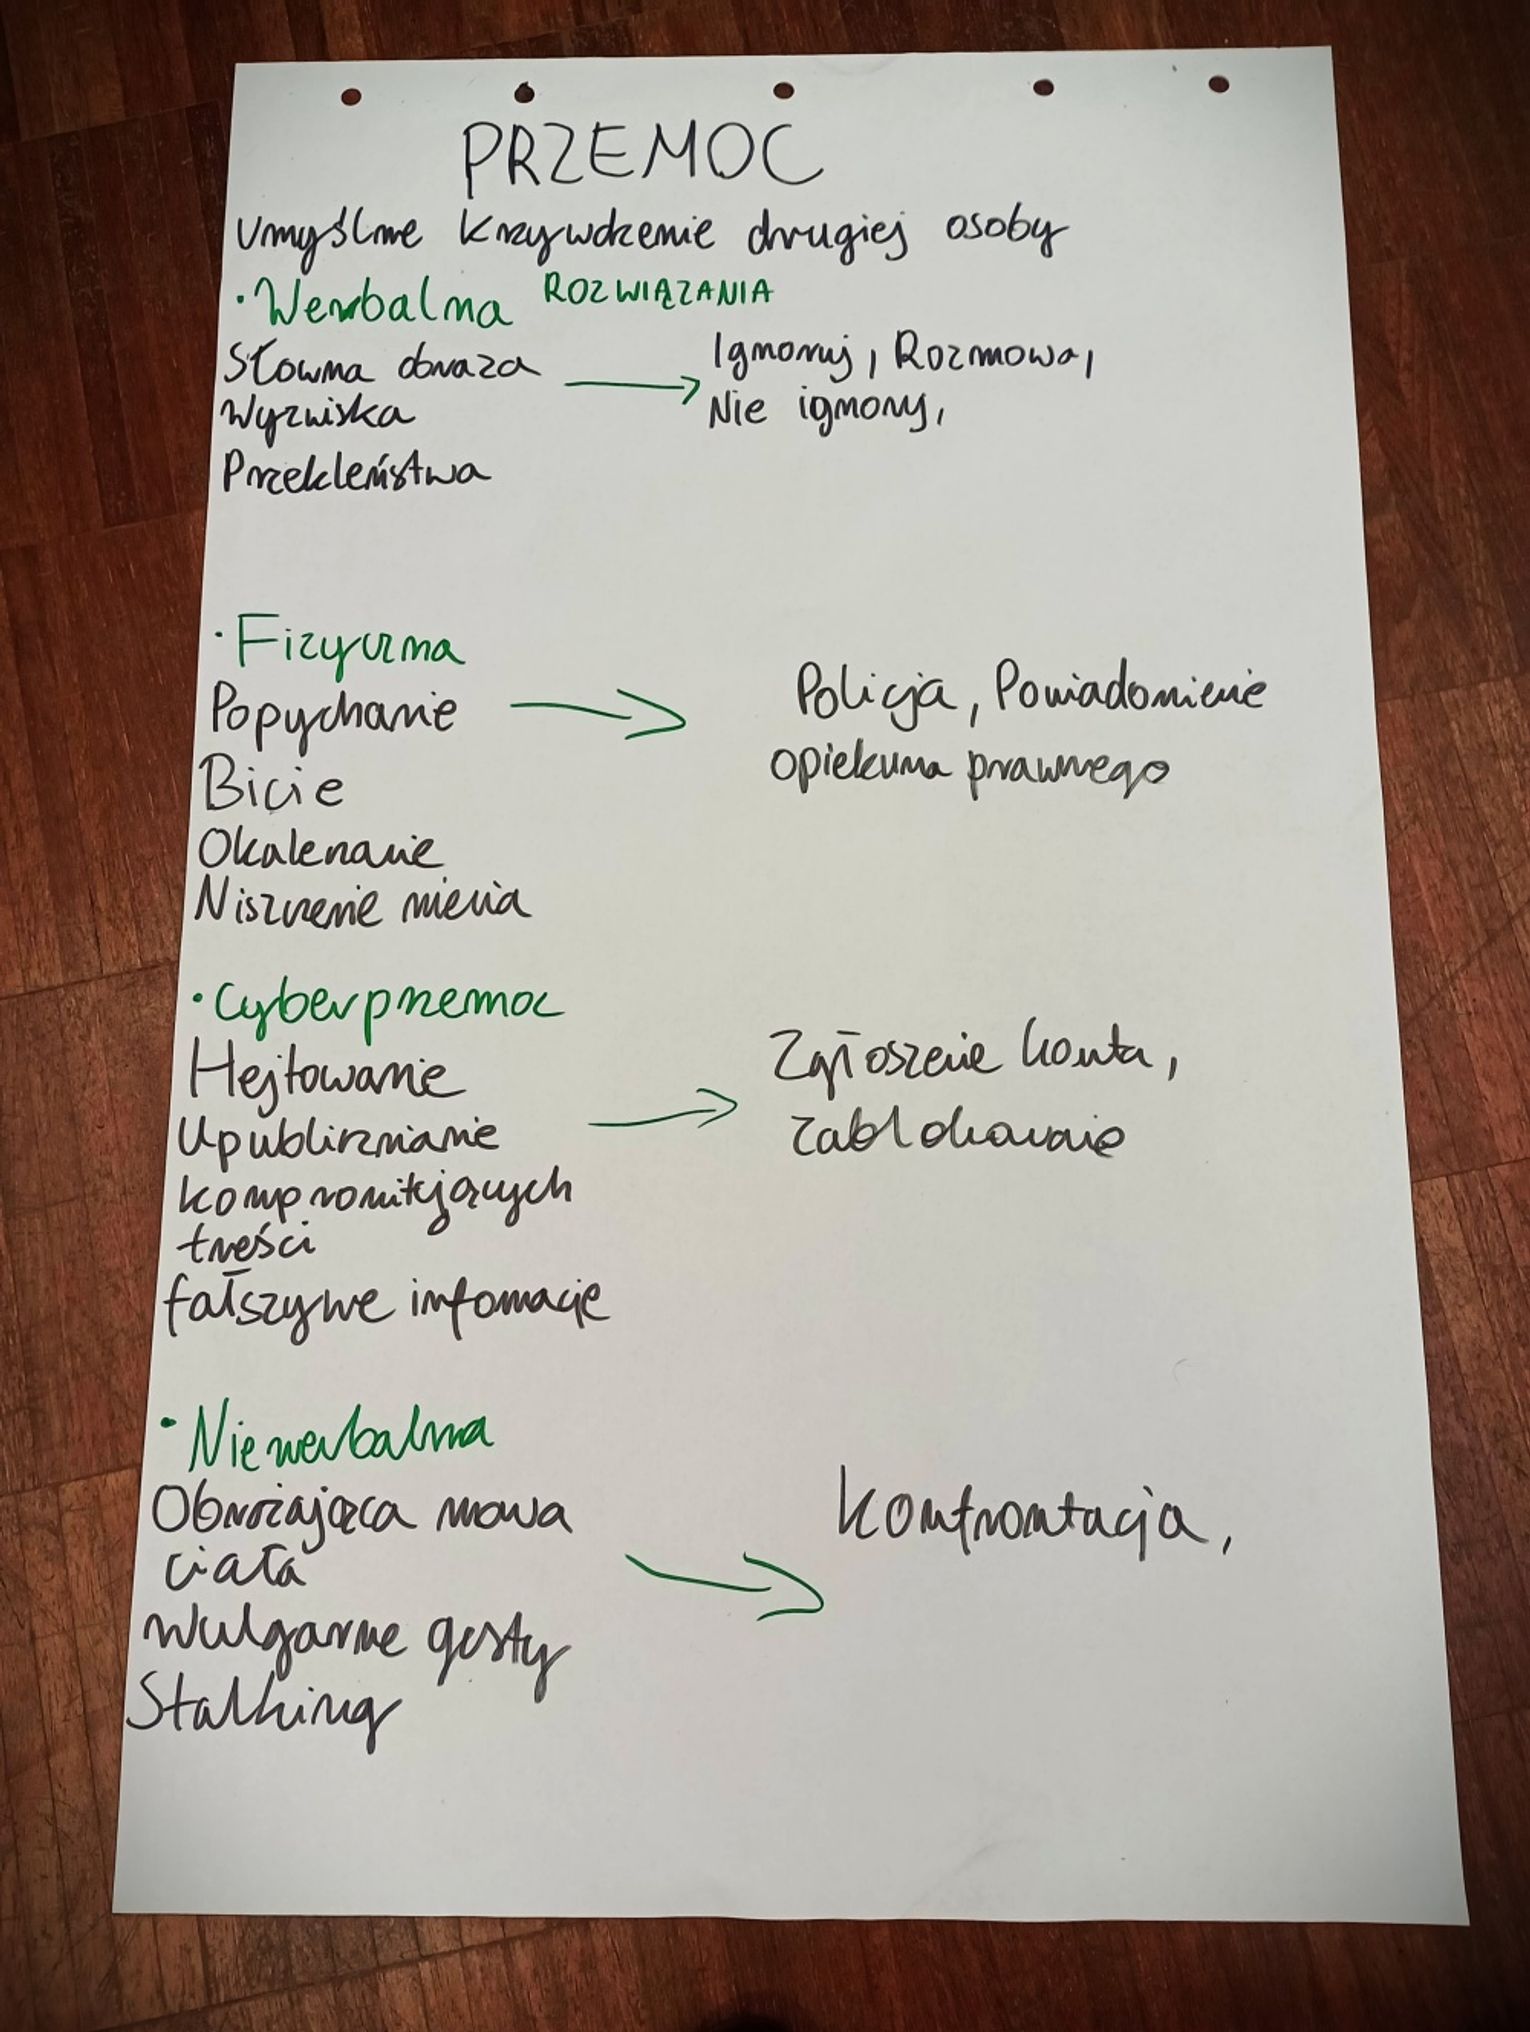 PRZEMOC
Umyślne krzywdzenie drugiej osoby
· Werbalna ROZWIĄZANIA
Słowna obraza → Ignoruj, Rozmowa,
Wyzwiska Nie ignoruj,
Przekleństwa
· Fizyczna
Popychanie → Policja, Powiadomienie
Bicie opiekuna prawnego
Okaleczanie
Niszczenie mienia
· Cyberprzemoc
Hejtowanie → Zgłoszenie konta,
Upublicznianie zablokowanie
kompromitujących
treści
fałszywe infomacje
· Niewerbalna
Obrażająca mowa → Konfrontacja,
ciała
Wulgarne gesty
Stalking